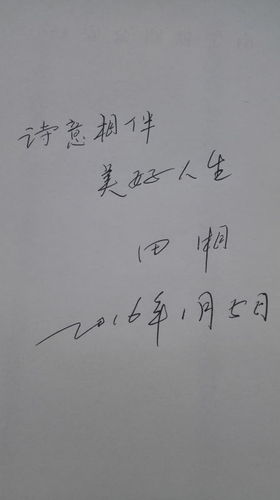 诗意相伴
美好人生
田湘
2016年1月5日